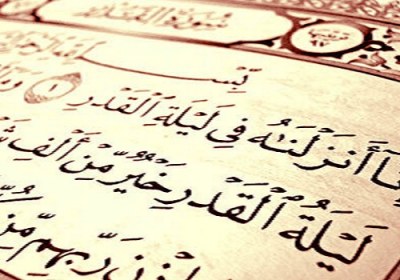 سُورَةُ القَدْرِ
بِسْمِ
أَنزَلْنَٰهُ فِي لَيْلَةِ ٱلْقَدْرِ ١
لَيْلَةُ ٱلْقَدْرِ خَيْرٌ مِّنْ أَلْفِ
رَبِّهِم مِّن